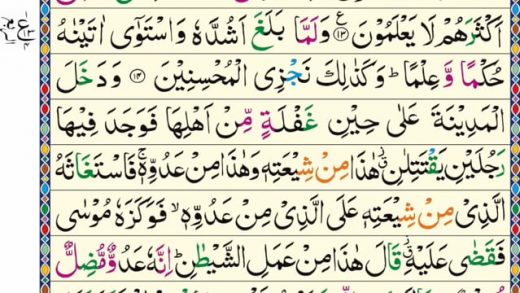 اَكْثَرَهُمْ لَا یَعْلَمُوْنَ ﴿۱۳﴾ وَلَمَّا بَلَغَ اَشُدَّهٗ وَاسْتَوٰۤی اٰتَیْنٰهُ
حُكْمًا وَّ عِلْمًا ؕ وَكَذٰلِكَ نَجْزِی الْمُحْسِنِیْنَ ﴿۱۴﴾ وَ دَخَلَ
الْمَدِیْنَةَ عَلٰی حِیْنِ غَفْلَةٍ مِّنْ اَهْلِهَا فَوَجَدَ فِیْهَا
رَجُلَیْنِ یَقْتَتِلٰنِ ؗ هٰذَا مِنْ شِیْعَتِهٖ وَهٰذَا مِنْ عَدُوِّهٖ ۚ فَاسْتَغَاثَهُ
الَّذِیْ مِنْ شِیْعَتِهٖ عَلَی الَّذِیْ مِنْ عَدُوِّهٖ ۙ فَوَكَزَهٗ مُوْسٰی
فَقَضٰی عَلَیْهِ ؗ قَالَ هٰذَا مِنْ عَمَلِ الشَّیْطٰنِ ؕ اِنَّهٗ عَدُوٌّ مُّضِلٌّ